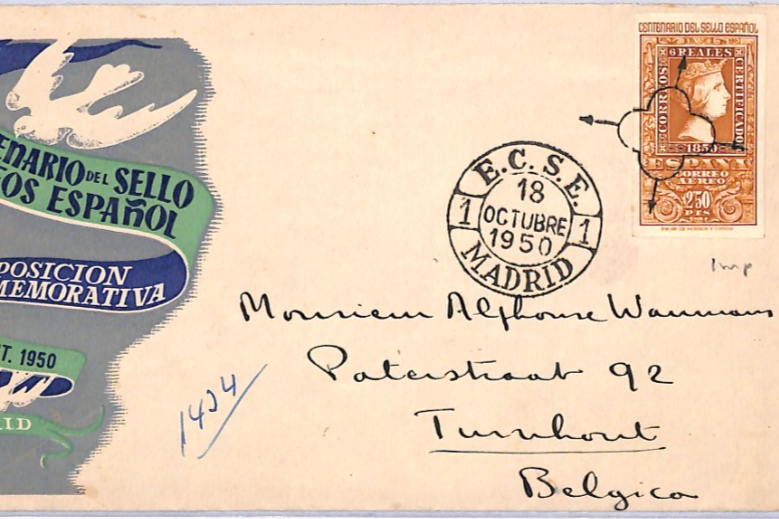 ENARIO DEL SELLO
OS ESPAÑOL
POSICION
MEMORATIVA
T. 1950
RID
E.C.S.E.
18
OCTUBRE
1950
1
1
MADRID
CENTENARIO DEL SELLO ESPAÑOL
6 REALES
CORREOS
CERTIFICADO
1850
ESPAÑA
CORREO
AEREO
2'50
PTS
Imp
Monsieur Alphonse
Paterstraat 92
Turnhout
Belgica
1434